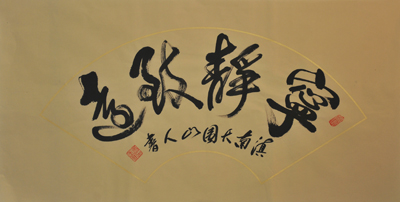 寧静致遠
滇南大園山人書